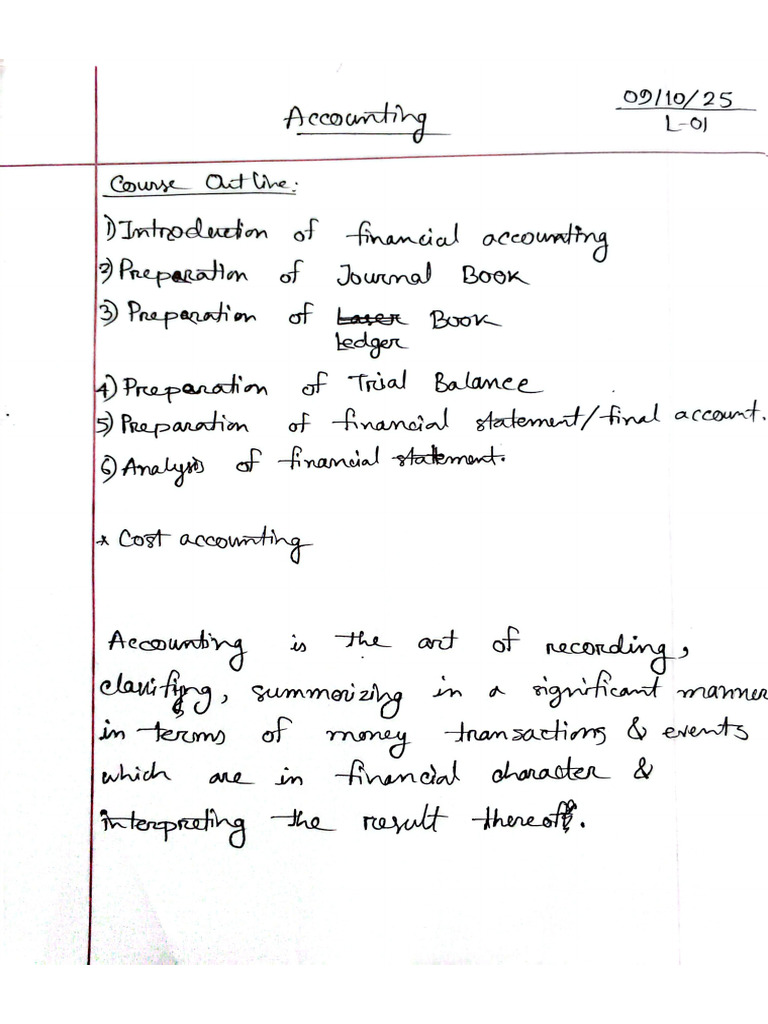 Accounting
09/10/25
L-01
Course Outline:
1) Introduction of financial accounting
2) Preparation of Journal Book
3) Preparation of Laser Book
Ledger
4) Preparation of Trial Balance
5) Preparation of financial statement/final account.
6) Analysis of financial statement.
* Cost accounting
Accounting is the art of recording,
classifying, summorizing in a significant manner
in terms of money transactions & events
which are in financial character &
interpreting the result thereoff.